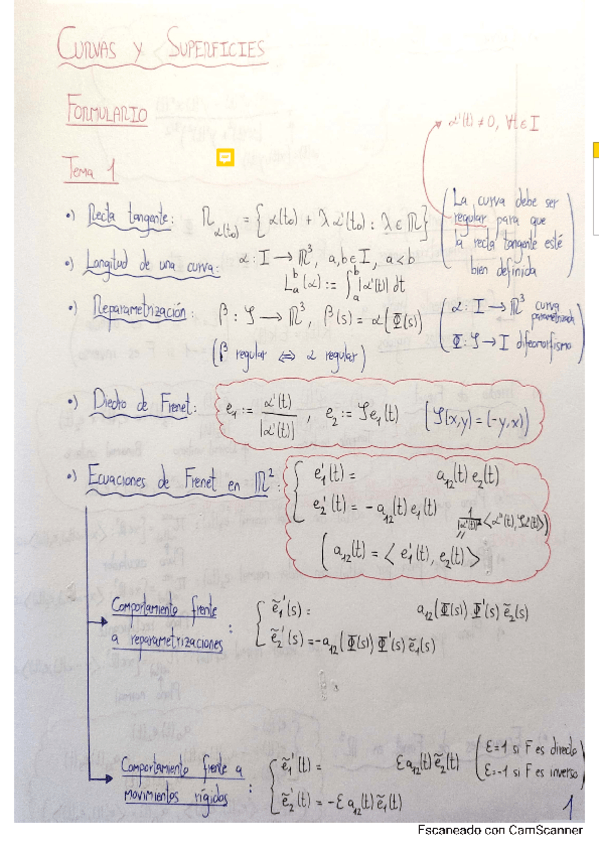 CURVAS Y SUPERFICIES
FORMULARIO
α'(t) ≠ 0, ∀t ∈ I
Tema 1
•) Recta tangente: R_{α(t₀)} = {α(t₀) + λ α'(t₀) : λ ∈ ℝ}
(La curva debe ser
regular para que
la recta tangente esté
bien definida)
•) Longitud de una curva: α: I → ℝ³, a,b ∈ I, a < b
L_a^b(α) := ∫_a^b |α'(t)| dt
•) Reparametrización: β: J → ℝ³, β(s) = α(Φ(s))
(β regular ⟺ α regular)
(α: I → ℝ³ curva
parametrizada
Φ: J → I difeomorfismo)
•) Diedro de Frenet: e₁ := α'(t) / |α'(t)| , e₂ := J e₁(t) (J(x,y) = (-y,x))
•) Ecuaciones de Frenet en ℝ²: { e₁'(t) = a₁₂(t) e₂(t)
e₂'(t) = -a₁₂(t) e₁(t)
(a₁₂(t) = < e₁'(t), e₂(t) >
Comportamiento frente
a reparametrizaciones :
{ ẽ₁'(s) = a₁₂(Φ(s)) Φ'(s) ẽ₂(s)
ẽ₂'(s) = -a₁₂(Φ(s)) Φ'(s) ẽ₁(s)
Comportamiento frente a
movimientos rígidos :
{ ẽ₁'(t) = ε a₁₂(t) ẽ₂(t)
ẽ₂'(t) = -ε a₁₂(t) ẽ₁(t)
(ε=1 si F es directo
ε=-1 si F es inverso)
1
Escaneado con CamScanner